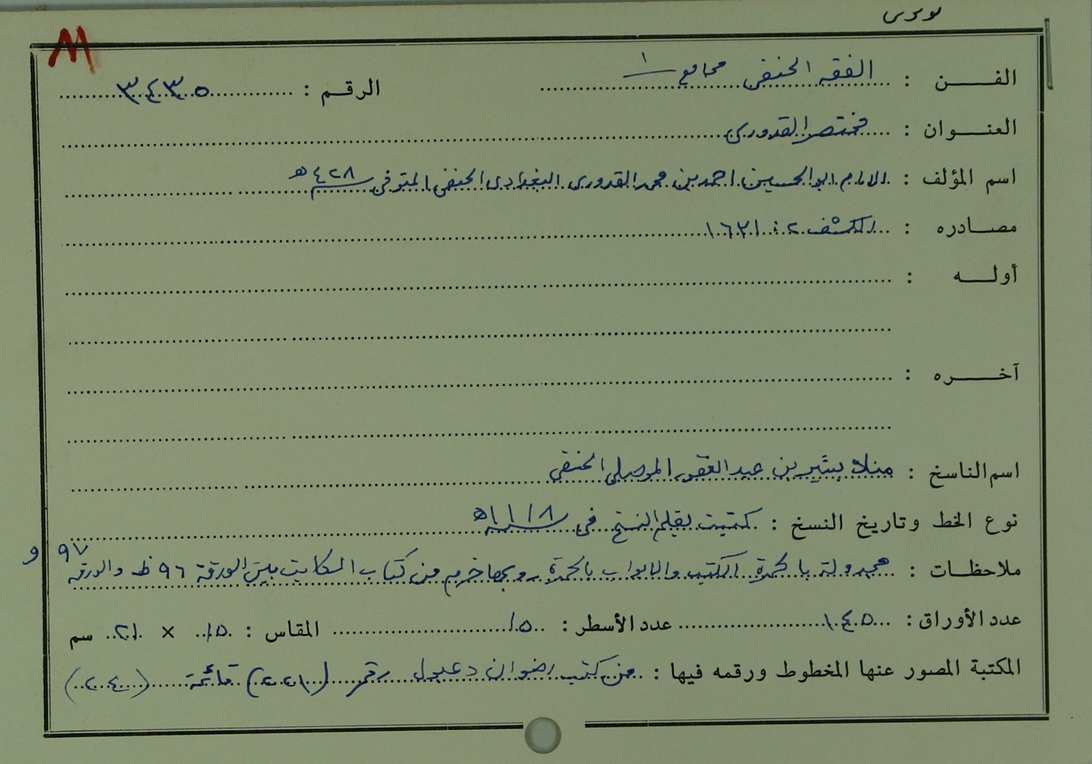 الفـــن : الفقه الحنفي مجاميع ١ الرقـم : ٣٤٣٥
العنـوان : مختصر القدوري
اسم المؤلف : الامام ابو الحسين احمد بن محمد القدوري البغدادي الحنفي المتوفى ٤٢٨ هـ
مصـادره : الكشف ٢ : ١٦٣١
أولــه :
آخـــره :
اسم الناسخ : منلا بشير بن عبد الغفور الموصلي الحنفي
نوع الخط وتاريخ النسخ : كتبت بقلم النسخ في ١١١٨ هـ
ملاحظـات : مجدولة بالحمرة الكتب والابواب بالحمرة وبها خرم من كتاب المكاتب بين الورقة ٩٦ ظ والورقة ٩٧ و
عدد الأوراق : ١٤٥ عدد الأسطر : ١٥ المقاس : ١٥ × ٢١ سم
المكتبة المصور عنها المخطوط ورقمه فيها : من كتب رضوان دعبول رقم (٢٢١) قائمة (٢٤٠)